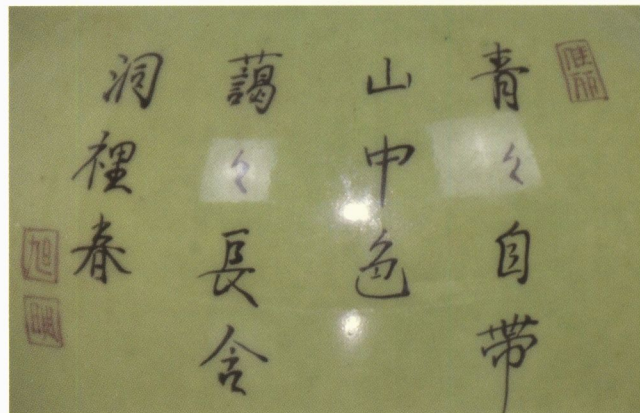 佳丽
青々自帶
山中色
藹々長含
洞裡春
旭